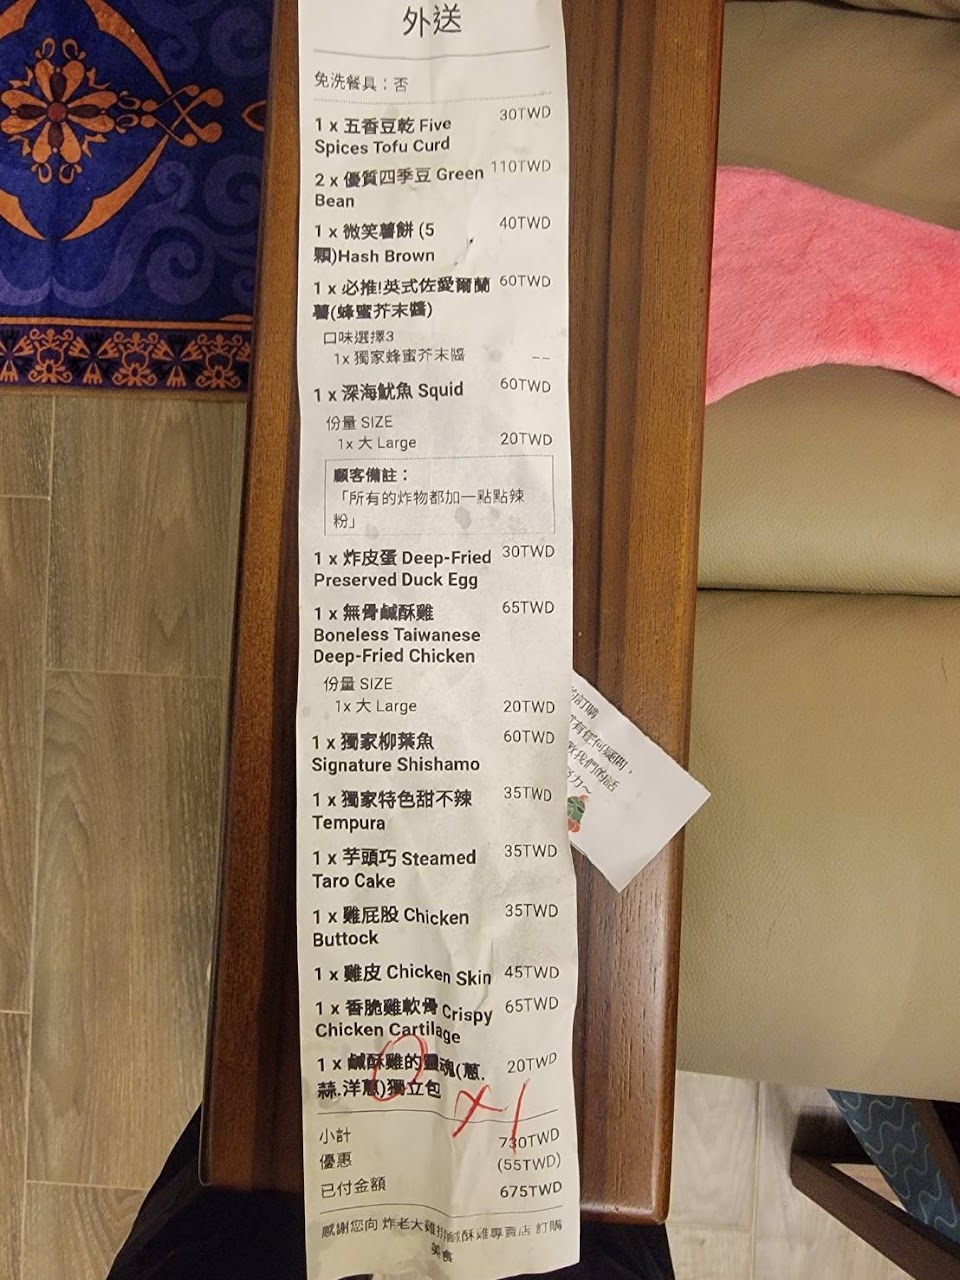 外送
免洗餐具：否
1 x 五香豆乾 Five 30TWD
Spices Tofu Curd
2 x 優質四季豆 Green 110TWD
Bean
1 x 微笑薯餅 (5 40TWD
顆)Hash Brown
1 x 必推!英式佐愛爾蘭 60TWD
薯(蜂蜜芥末醬)
口味選擇3
1x 獨家蜂蜜芥末醬 --
1 x 深海魷魚 Squid 60TWD
份量 SIZE
1x 大 Large 20TWD
顧客備註：
「所有的炸物都加一點點辣
粉」
1 x 炸皮蛋 Deep-Fried 30TWD
Preserved Duck Egg
1 x 無骨鹹酥雞 65TWD
Boneless Taiwanese
Deep-Fried Chicken
份量 SIZE
1x 大 Large 20TWD
1 x 獨家柳葉魚 60TWD
Signature Shishamo
1 x 獨家特色甜不辣 35TWD
Tempura
1 x 芋頭巧 Steamed 35TWD
Taro Cake
1 x 雞屁股 Chicken 35TWD
Buttock
1 x 雞皮 Chicken Skin 45TWD
1 x 香脆雞軟骨 Crispy 65TWD
Chicken Cartilage
1 x 鹹酥雞的靈魂(蔥. 20TWD
蒜.洋蔥)獨立包
x1
小計 730TWD
優惠 (55TWD)
已付金額 675TWD
感謝您向 炸老大雞排鹹酥雞專賣店 訂購
美食
訂購
有任何疑問，
我們的話
力~